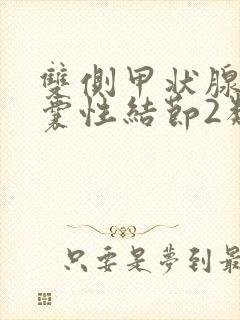 雙側甲狀腺
囊性結節2
只要是夢到最